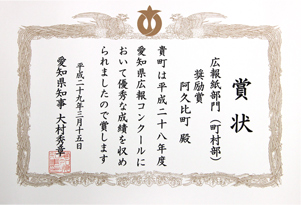 賞状
広報紙部門（町村部）
奨励賞
阿久比町 殿
貴町は平成二十八年度
愛知県広報コンクールに
おいて優秀な成績を収め
られましたので賞します
平成二十九年三月十五日
愛知県知事 大村秀章